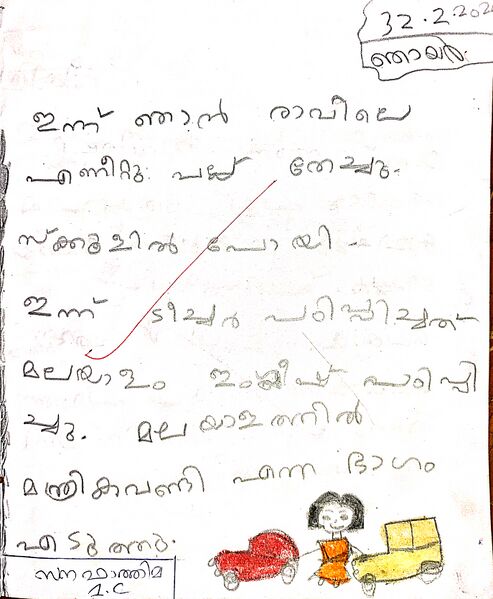 32.2.202
ഞായർ.
ഇന്ന് ഞാൻ രാവിലെ
എണീറ്റു. പല്ല് തേച്ചു.
സ്ക്കൂളിൽ പോയി.
ഇന്ന് ടീച്ചർ പഠിപ്പിച്ചത്
മലയാളം ഇംഗ്ലീഷ് പഠിപ്പി
ച്ചു. മലയാളത്തിൽ
മന്ത്രികാവണ്ടി എന്ന ഭാഗം
എടുത്തു.
സനഫാത്തിമ
1.C